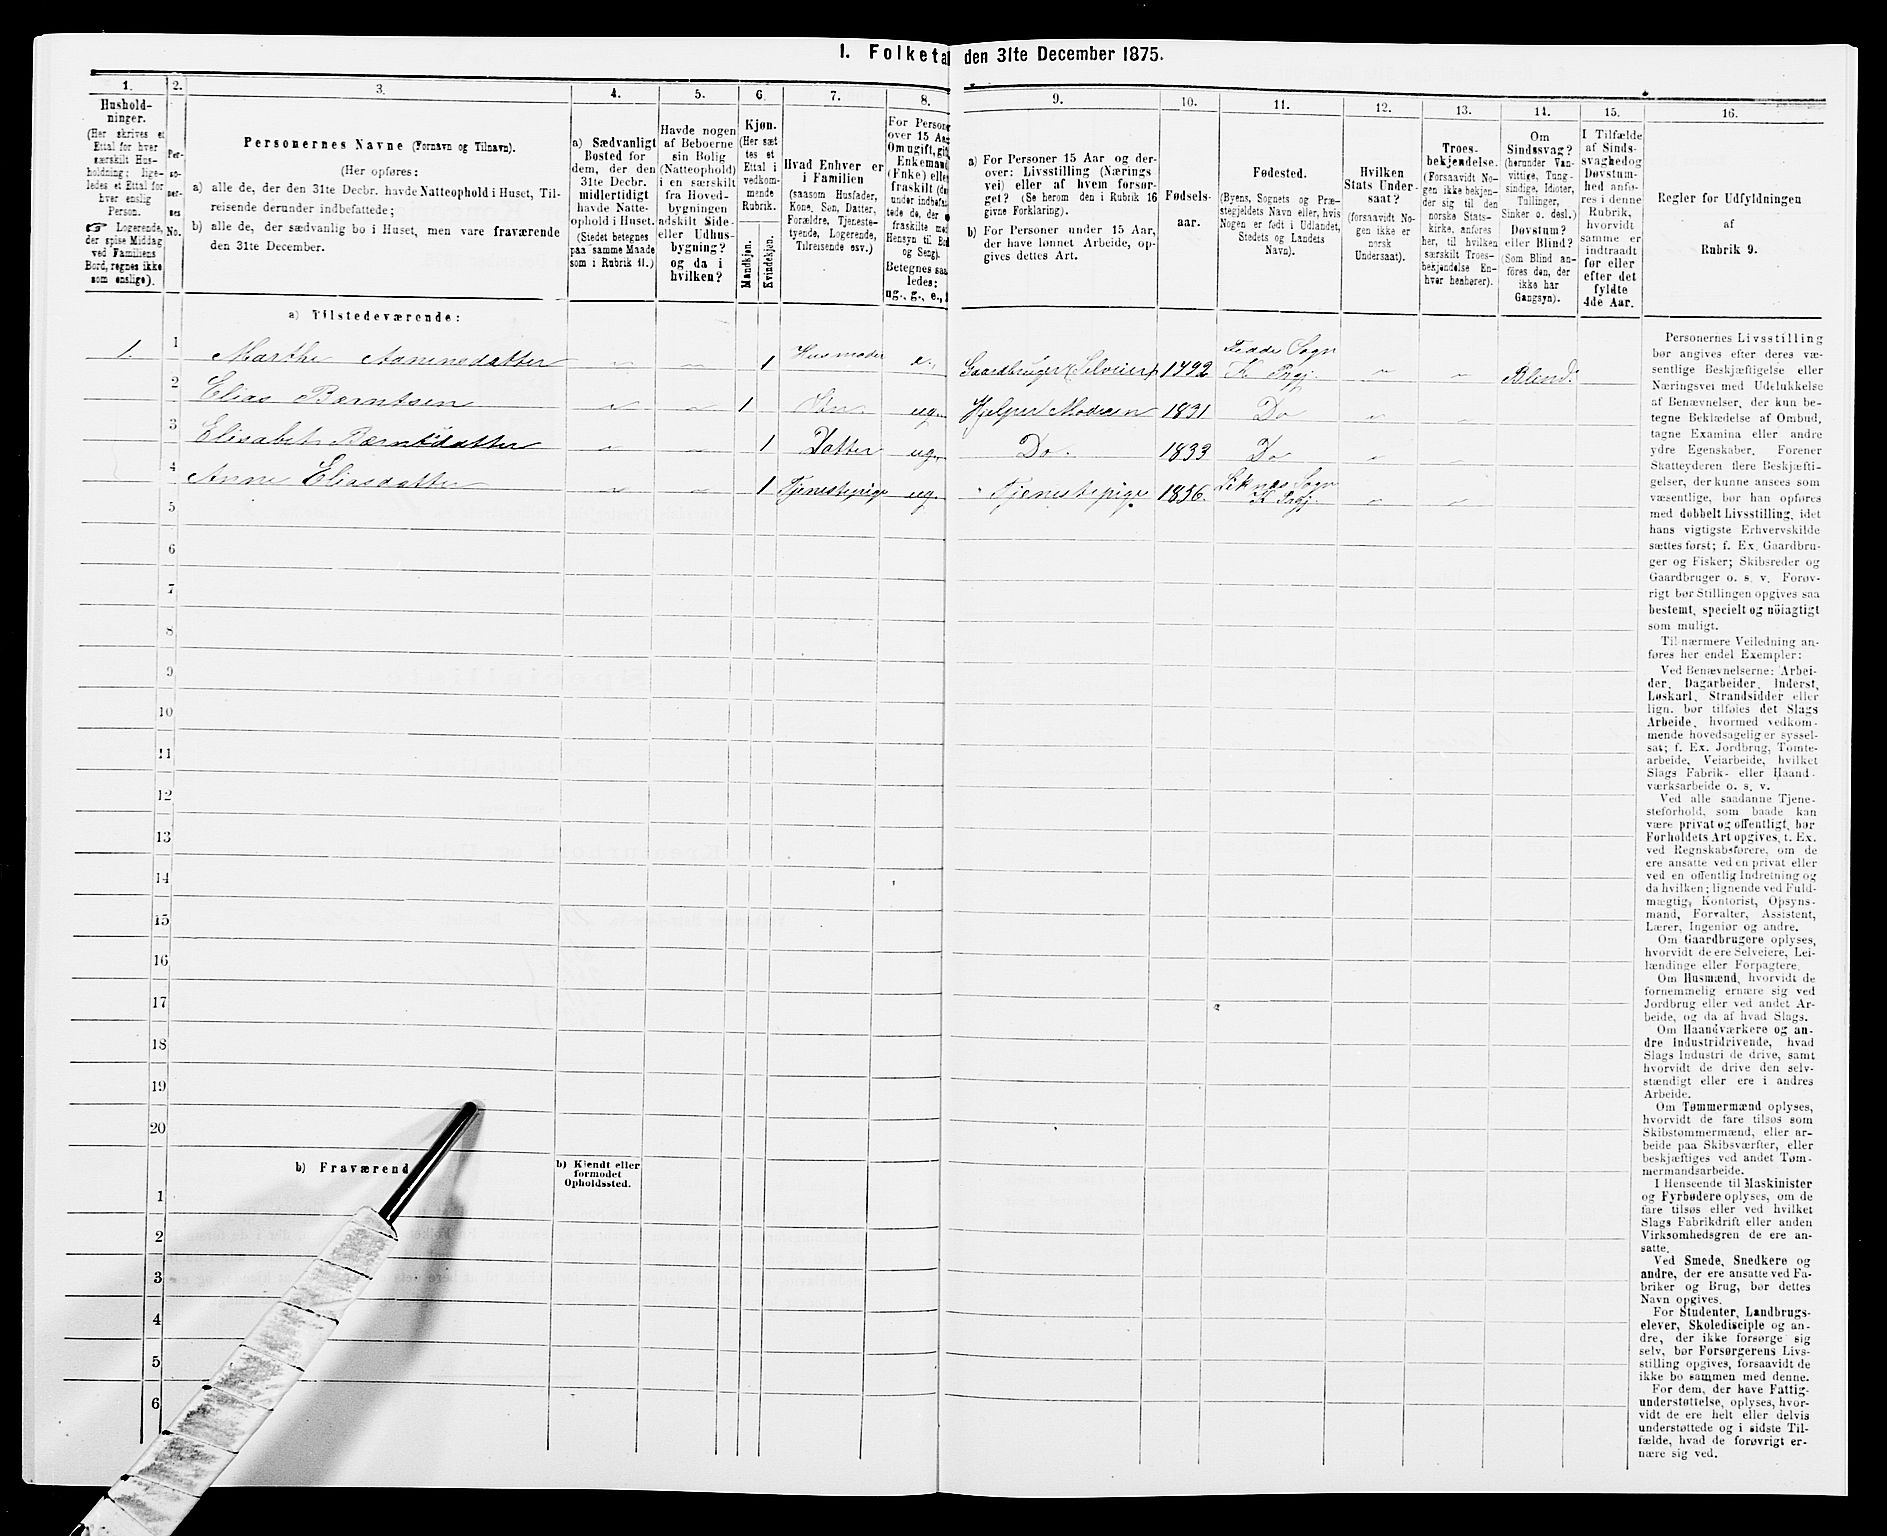 I. Folketa den 31te December 1875.
1.
Hushold-
ninger.
(Her skrives et
Ettal for hver
særskilt Hus-
holdning; lige-
ledes et Ettal for
hver enslig
Person.
☞ Logerende,
der spise Middag
ved Familiens
Bord, regnes ikke
som enslige).
2.
Per-
so-
ner-
nes
No.
3.
Personernes Navne (Fornavn og Tilnavn).
(Her opføres:
a) alle de, der den 31te Decbr. havde Natteophold i Huset, Til-
reisende derunder indbefattede;
b) alle de, der sædvanlig bo i Huset, men vare fraværende
den 31te December.
4.
a) Sædvanligt
Bosted for
dem, der den
31te Decbr.
midlertidigt
havde Natte-
ophold i Huset.
(Stedet betegnes
paa samme Maade
som i Rubrik 11.)
5.
Havde nogen
af Beboerne
sin Bolig
(Natteophold)
i en særskilt
fra Hoved-
bygningen
adskilt Side-
eller Udhus-
bygning?
og da i
hvilken?
6.
Kjøn.
(Her sæt
tes et
Ettal i
vedkom-
mende
Rubrik.
Mandkjøn.
Kvindekjøn.
7.
Hvad Enhver er
i Familien
(saasom Husfader,
Kone, Søn, Datter,
Forældre, Tjeneste-
tyende, Logerende,
Tilreisende osv.)
8.
For Person
over 15 Aa
Om ugift, gif
Enkemand
(Enke) elle
fraskilt (de
under indbefa
tede de, der e
fraskilte med
Hensyn til Bo
og Seng).
Betegnes saa
ledes:
ug., g., e.,
9.
a) For Personer 15 Aar og der-
over: Livsstilling (Nærings
vei) eller af hvem forsør-
get? (Se herom den i Rubrik 16
givne Forklaring).
b) For Personer under 15 Aar,
der have lønnet Arbeide, op-
gives dettes Art.
10.
Fødsels-
aar.
11.
Fødested.
(Byens, Sognets og Præ-
stegjeldets Navn eller, hvis
Nogen er født i Udlandet,
Stedets og Landets
Navn).
12.
Hvilken
Stats Under-
saat?
(forsaavidt No-
gen ikke er
norsk
Undersaat).
13.
Troes-
bekjendelse.
(Forsaavidt No-
gen ikke bekjen-
der sig til den
norske Stats-
kirke, anføres
her, til hvilken
særskilt Troes-
bekjendelse En-
hver henhører).
14.
Om
Sindssvag?
(herunder Van-
vittige, Tung-
sindige, Idioter,
Tullinger,
Sinker o. desl.)
Døvstum?
eller Blind?
(Som Blind an-
føres den, der
ikke har
Gangsyn).
15.
I Tilfælde
af Sinds-
svaghed og
Døvstum-
hed anfø-
res i denne
Rubrik,
hvorvidt
samme er
indtraadt
før eller
efter det
fyldte
4de Aar.
16.
Regler for Udfyldningen
af
Rubrik 9.
a) Tilstedeværende:
1. 1 Marthe Aanensdatter " " 1 Husmoder e. Gaardbruger (Selveier) 1792 Fedde Sogn K. Prgj. " " Blind.
2 Elias Berntsen " " 1 Søn ug. Hjelper Moderen 1831 Do "
3 Elisabet Berntsdatter " " 1 Datter ug. Do. 1833 Do " "
4 Anne Eliasdatter " " 1 Tjenestepige ug. Tjenestepige 1856. Sogn K. Prgj. " "
5
6
7
8
9
10
11
12
13
14
15
16
17
18
19
20
b) Fraværend
b) Kjendt eller
formodet
Opholdssted.
1
2
3
4
5
6
Personernes Livsstilling
bør angives efter deres væ-
sentlige Beskjæftigelse eller
Næringsvei med Udelukkelse
af Benævnelser, der kun be-
tegne Beklædelse af Ombud,
tagne Examina eller andre
ydre Egenskaber. Forener
Skatteyderen flere Beskjæfti-
gelser, der kunne ansees som
væsentlige, bør han opføres
med dobbelt Livsstilling, idet
hans vigtigste Erhvervskilde
sættes først; f. Ex. Gaardbru-
ger og Fisker; Skibsreder og
Gaardbruger o. s. v. Forøv-
rigt bør Stillingen opgives saa
bestemt, specielt og nöiagtigt
som muligt.
Til nærmere Veiledning an-
føres her endel Exempler:
Ved Benævnelserne: Arbei-
der, Dagarbeider, Inderst,
Løskarl, Strandsidder eller
lign. bør tilføies det Slags
Arbeide, hvormed vedkom-
mende hovedsagelig er syssel-
sat; f. Ex. Jordbrug, Tomte-
arbeide, Veiarbeide, hvilket
Slags Fabrik- eller Haand-
værksarbeide o. s. v.
Ved alle saadanne Tjene-
steforhold, som baade kan
være privat og offentligt, bør
Forholdets Art opgives, t. Ex.
ved Regnskabsførere, om de
ere ansatte ved en privat eller
ved en offentlig Indretning og
da hvilken; lignende ved Fuld-
mægtig, Kontorist, Opsyns-
mand, Forvalter, Assistent,
Lærer, Ingeniør og andre.
Om Gaardbrugere oplyses,
hvorvidt de ere Selveiere, Lei-
lændinge eller Forpagtere.
Om Husmænd, hvorvidt de
fornemmelig ernære sig ved
Jordbrug eller ved andet Ar-
beide, og da af hvad Slags.
Om Haandværkere og an-
dre Industridrivende, hvad
Slags Industri de drive, samt
hvorvidt de drive den selv-
stændigt eller ere i andres
Arbeide.
Om Tømmermænd oplyses,
hvorvidt de fare tilsøs som
Skibstømmermænd, eller ar-
beide paa Skibsværfter, eller
beskjæftiges ved andet Tøm-
mermandsarbeide.
I Henseende til Maskinister
og Fyrbødere oplyses, om de
fare tilsøs eller ved hvilket
Slags Fabrikdrift eller anden
Virksomhedsgren de ere an-
satte.
Ved Smede, Snedkere og
andre, der ere ansatte ved Fa-
briker og Brug, bør dettes
Navn opgives.
For Studenter, Landbrugs-
elever, Skoledisciple og an-
dre, der ikke forsørge sig
selv, bør Forsørgerens Livs-
stilling opgives, forsaavidt de
ikke bo sammen med denne.
For dem, der have Fattig-
understøttelse, oplyses, hvor-
vidt de ere helt eller delvis
understøttede og i sidste Til-
fælde, hvad de forøvrigt er-
nære sig ved.